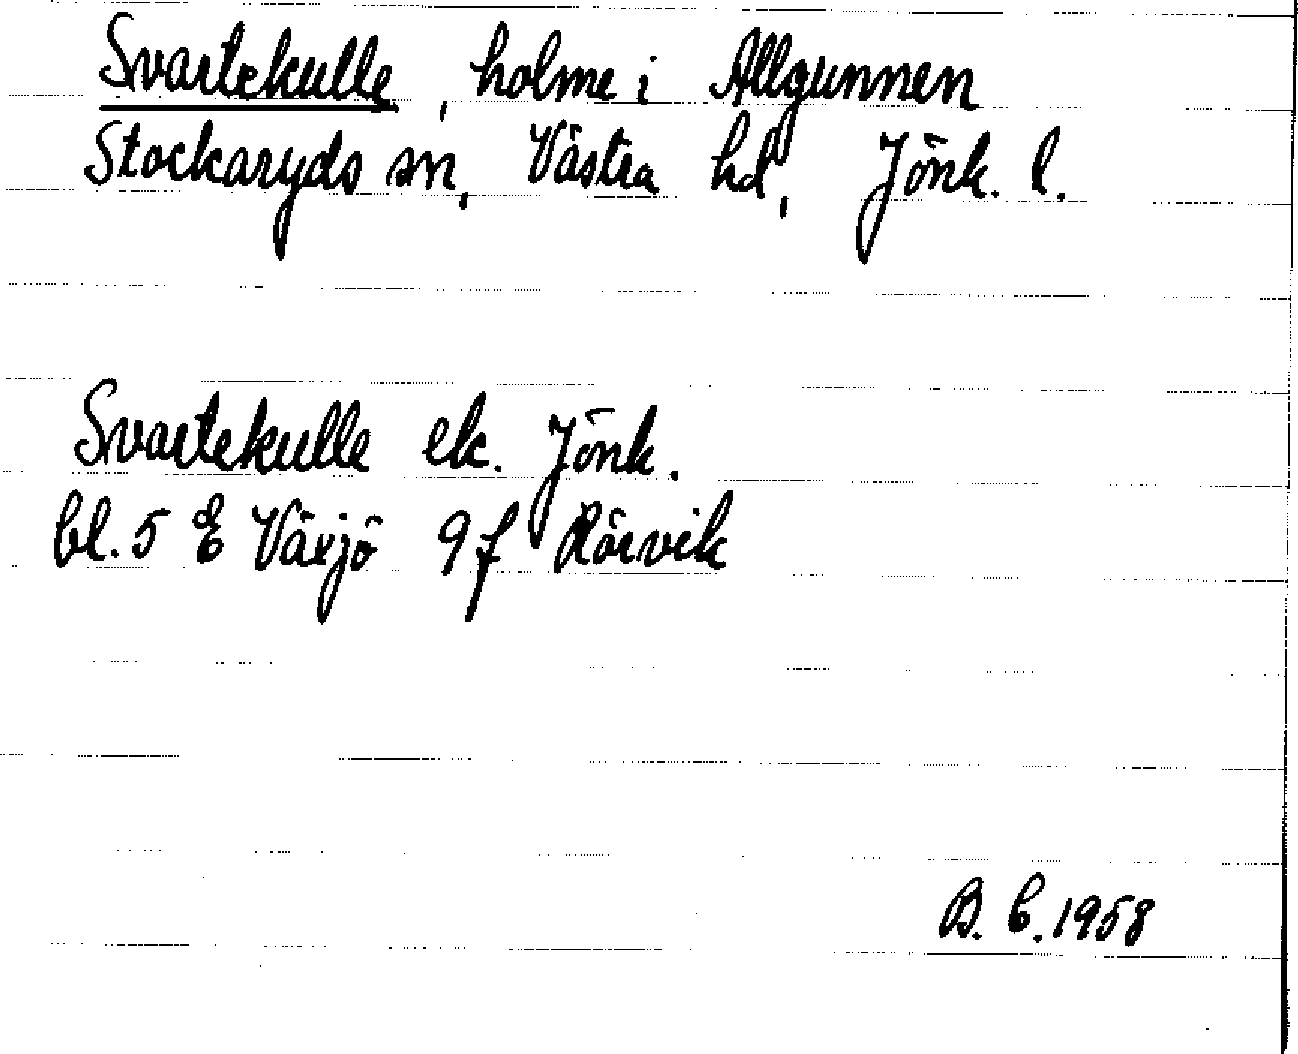 Svartekulle, holme i Allgunnen
Stockaryds sn, Västra hd, Jönk. l.
Svartekulle ek. Jönk.
bl. 5 E Växjö 9f Rörvik
B. E. 1958